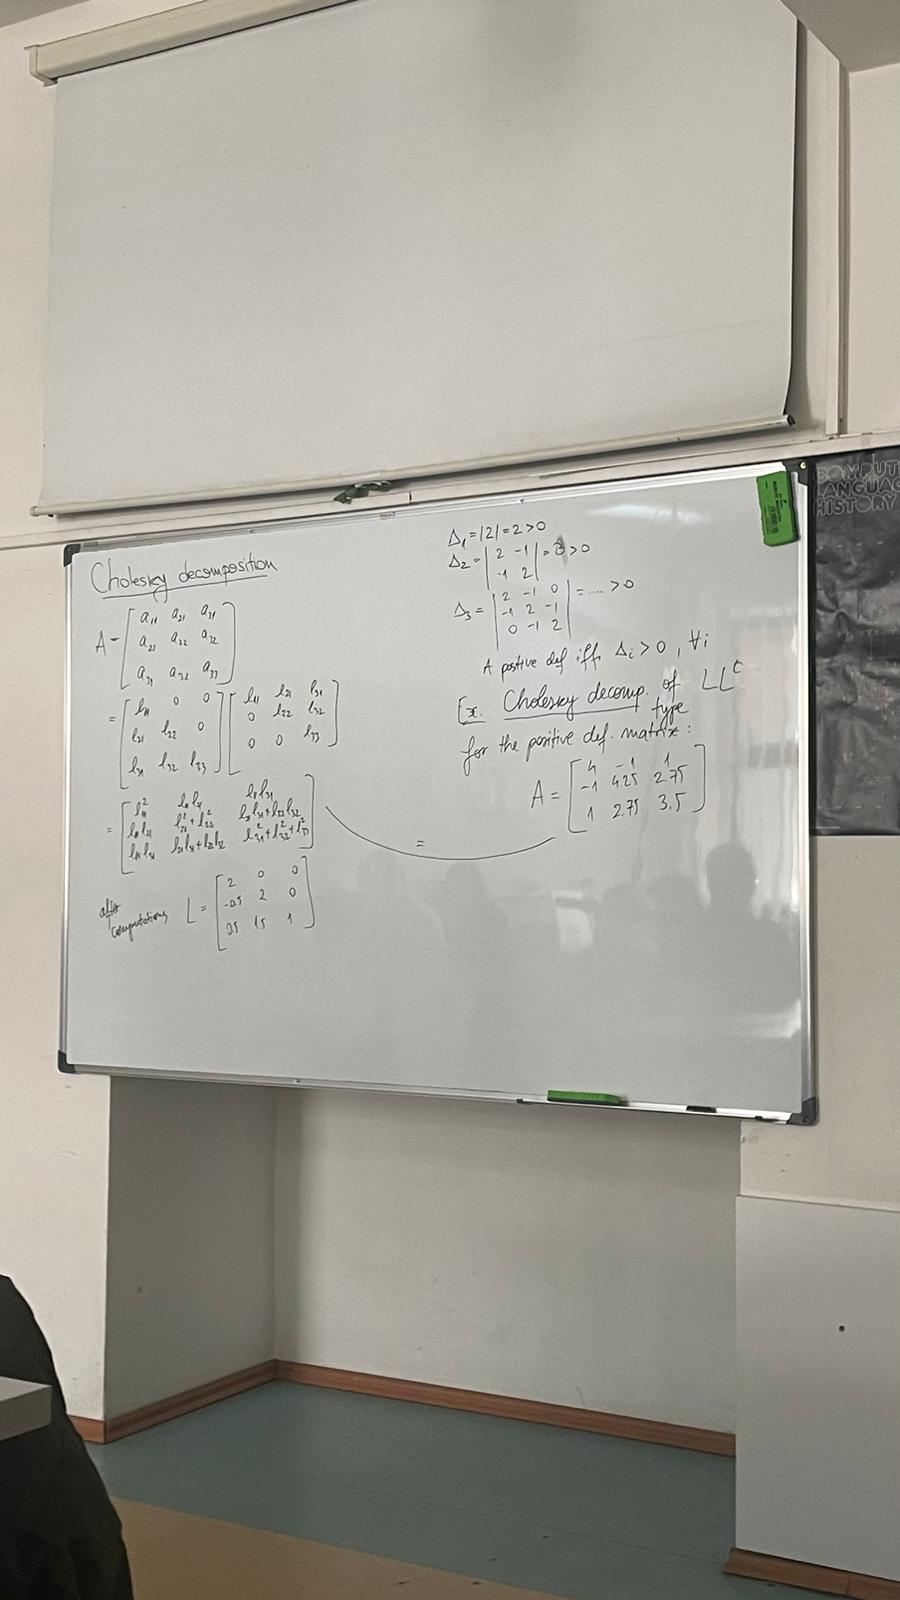 Cholesky decomposition
A = [ a11 a21 a31
a21 a22 a32
a31 a32 a33 ]
= [ l11 0 0
l21 l22 0
l31 l32 l33 ] [ l11 l21 l31
0 l22 l32
0 0 l33 ]
= [ l11² l11l21 l11l31
l11l21 l21²+l22² l21l31+l22l32
l11l31 l21l31+l22l32 l31²+l32²+l33² ]
=
after
computations L = [ 2 0 0
-0.5 2 0
0.5 1.5 1 ]
Δ1 = |2| = 2 > 0
Δ2 = | 2 -1
-1 2 | = 3 > 0
Δ3 = | 2 -1 0
-1 2 -1
0 -1 2 | = .... > 0
A postive def iff Δi > 0, ∀i
Ex. Cholesky decomp. of LLᵗ
type
for the positive def. matrix:
A = [ 4 -1 1
-1 4.25 2.75
1 2.75 3.5 ]
COMPUT
LANGUAG
HISTORY